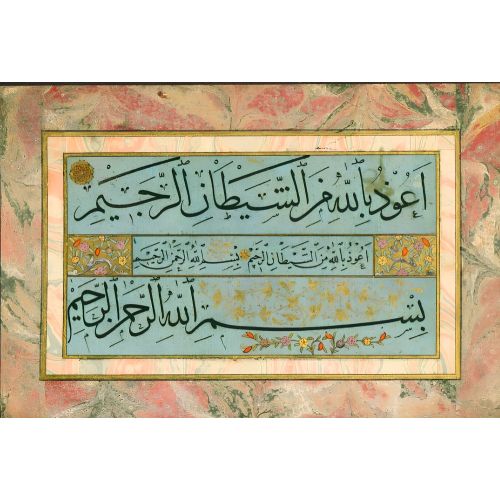 اَعُوْذُ بِاللّٰهِ مِنَ الشَّيْطَانِ الرَّجِيْمِ
اَعُوْذُ بِاللّٰهِ مِنَ الشَّيْطَانِ الرَّجِيْمِ بِسْمِ اللّٰهِ الرَّحْمٰنِ الرَّحِيْمِ
بِسْمِ اللّٰهِ الرَّحْمٰنِ الرَّحِيْمِ